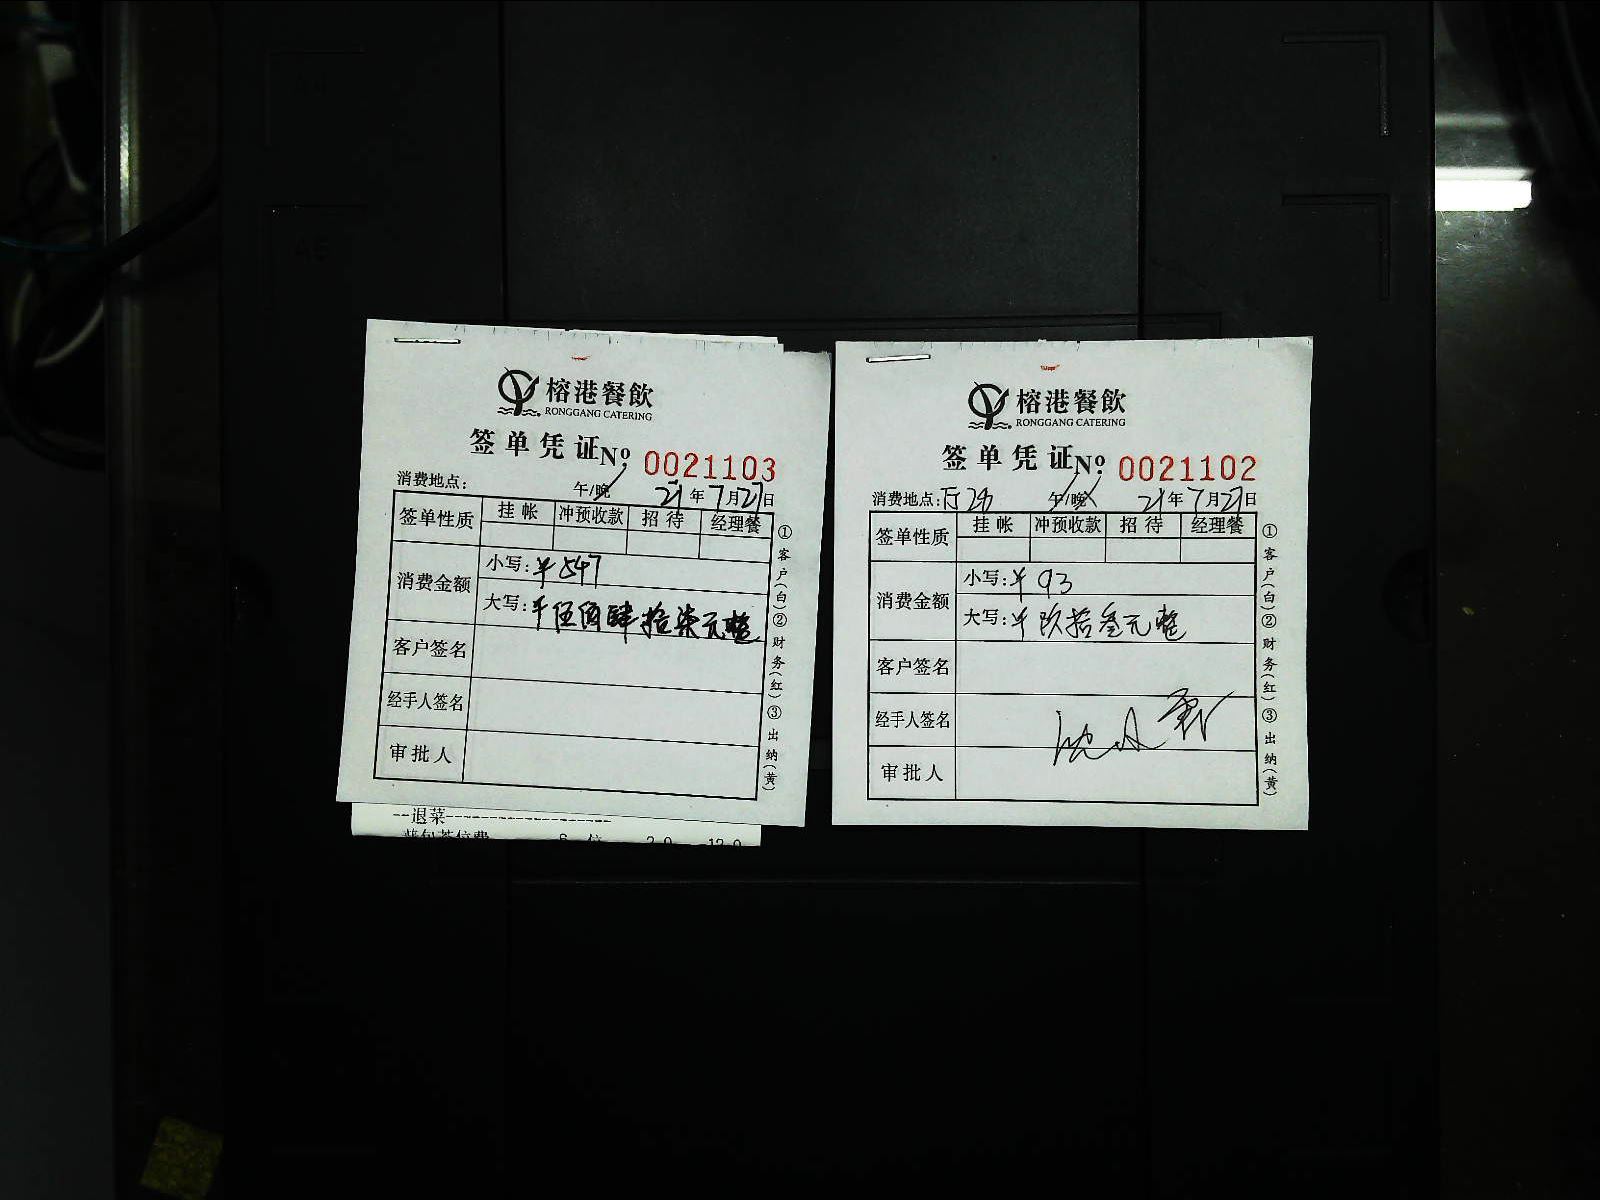 榕港餐飲
RONGGANG CATERING
签单凭证 Nº 0021103
消费地点: 午/晚 21年7月27日
签单性质 挂帐 冲预收款 招待 经理餐
消费金额
小写:¥547
大写:¥伍佰肆拾柒元整
客户签名
经手人签名
审批人
①客户(白)②财务(红)③出纳(黄)
--退菜--------------------
6 位 2.0 -12.0
榕港餐飲
RONGGANG CATERING
签单凭证 Nº 0021102
消费地点: 午/晚 21年7月27日
签单性质 挂帐 冲预收款 招待 经理餐
消费金额
小写:¥93
大写:¥玖拾叁元整
客户签名
经手人签名
审批人
①客户(白)②财务(红)③出纳(黄)
A5